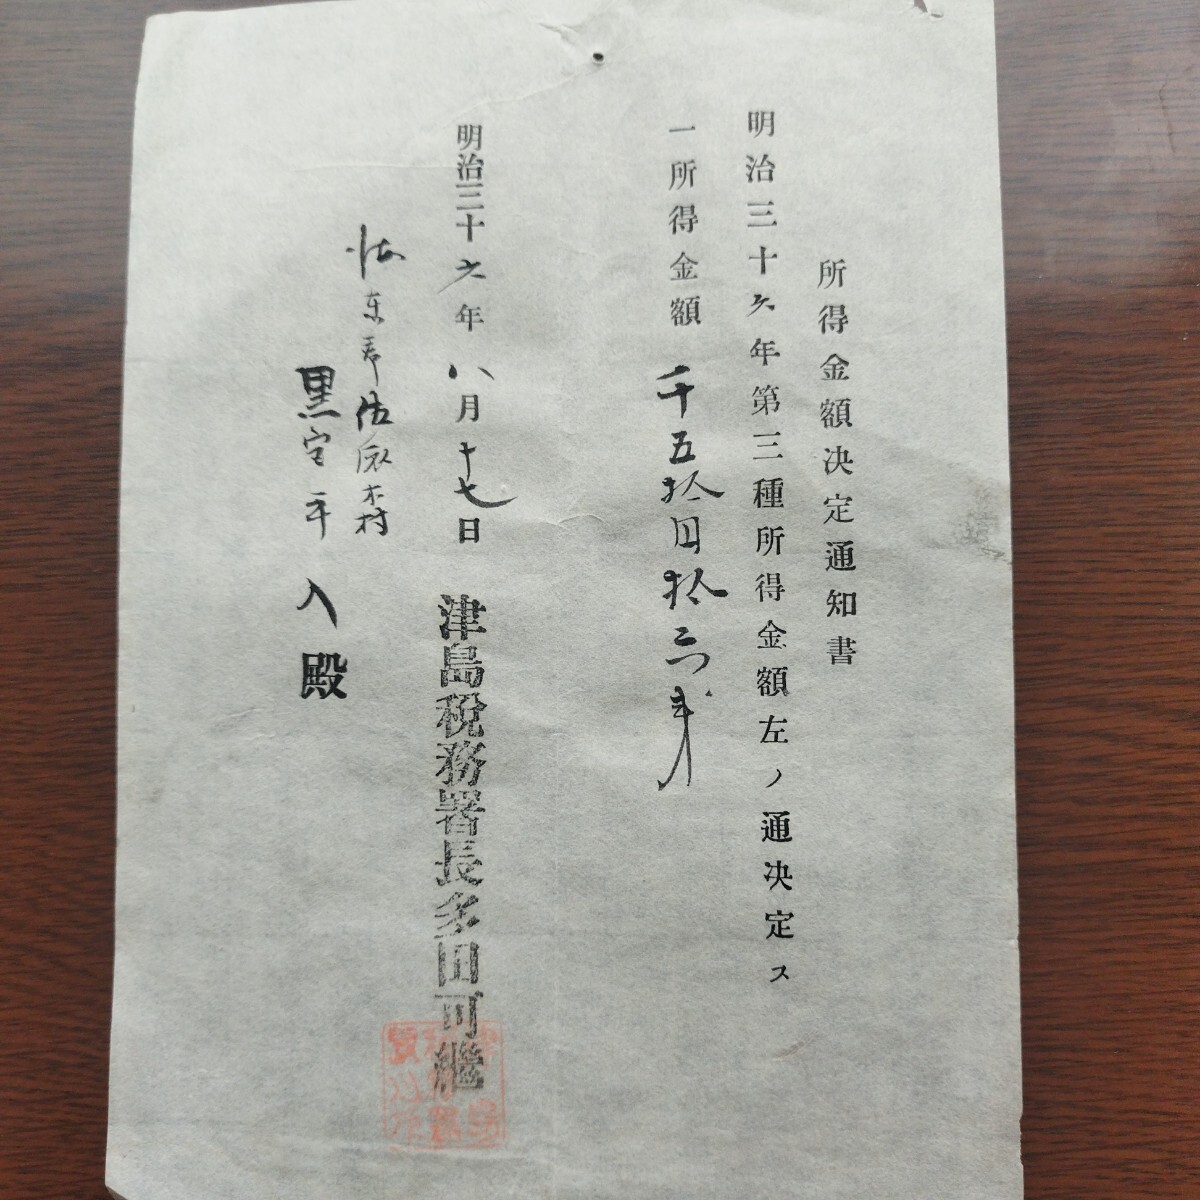 所得金額決定通知書
明治三十六年第三種所得金額左ノ通決定ス
一所得金額 千五拾円拾三銭
明治三十六年八月十七日 津島税務署長多田可繼
海東郡佐織村
黒宮平入殿